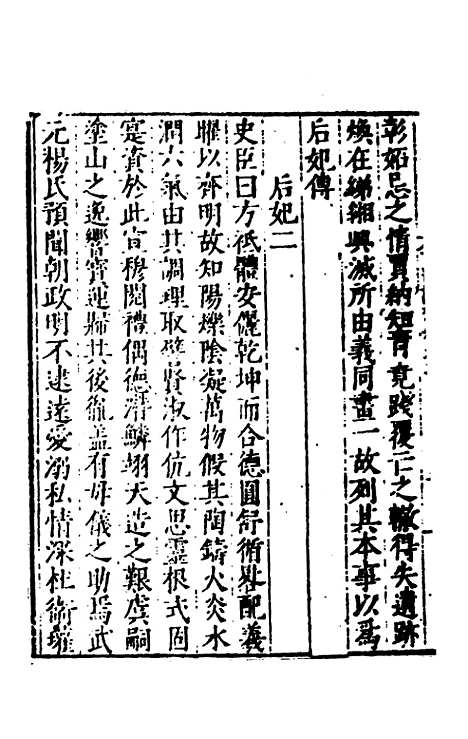 彰妬忌之情賈納短青竟踐覆亡之轍得失遺跡
煥在綈緗興滅所由義同畫一故列其本事以爲
后妃傳
后妃二
史臣曰方祇體安儷乾坤而合德圓舒循晷配羲
曜以齊明故知陽爍陰凝萬物假其陶鑄火炎水
潤六氣由其調理取譬賢淑作伉文思靈根式固
寔資於此宣穆閱禮偶德潛鱗翊天造之艱虞嗣
塗山之逸響寶運歸其後胤蓋有母儀之助焉武
元楊氏預聞朝政明不逮遠愛溺私情深杜衛瓘